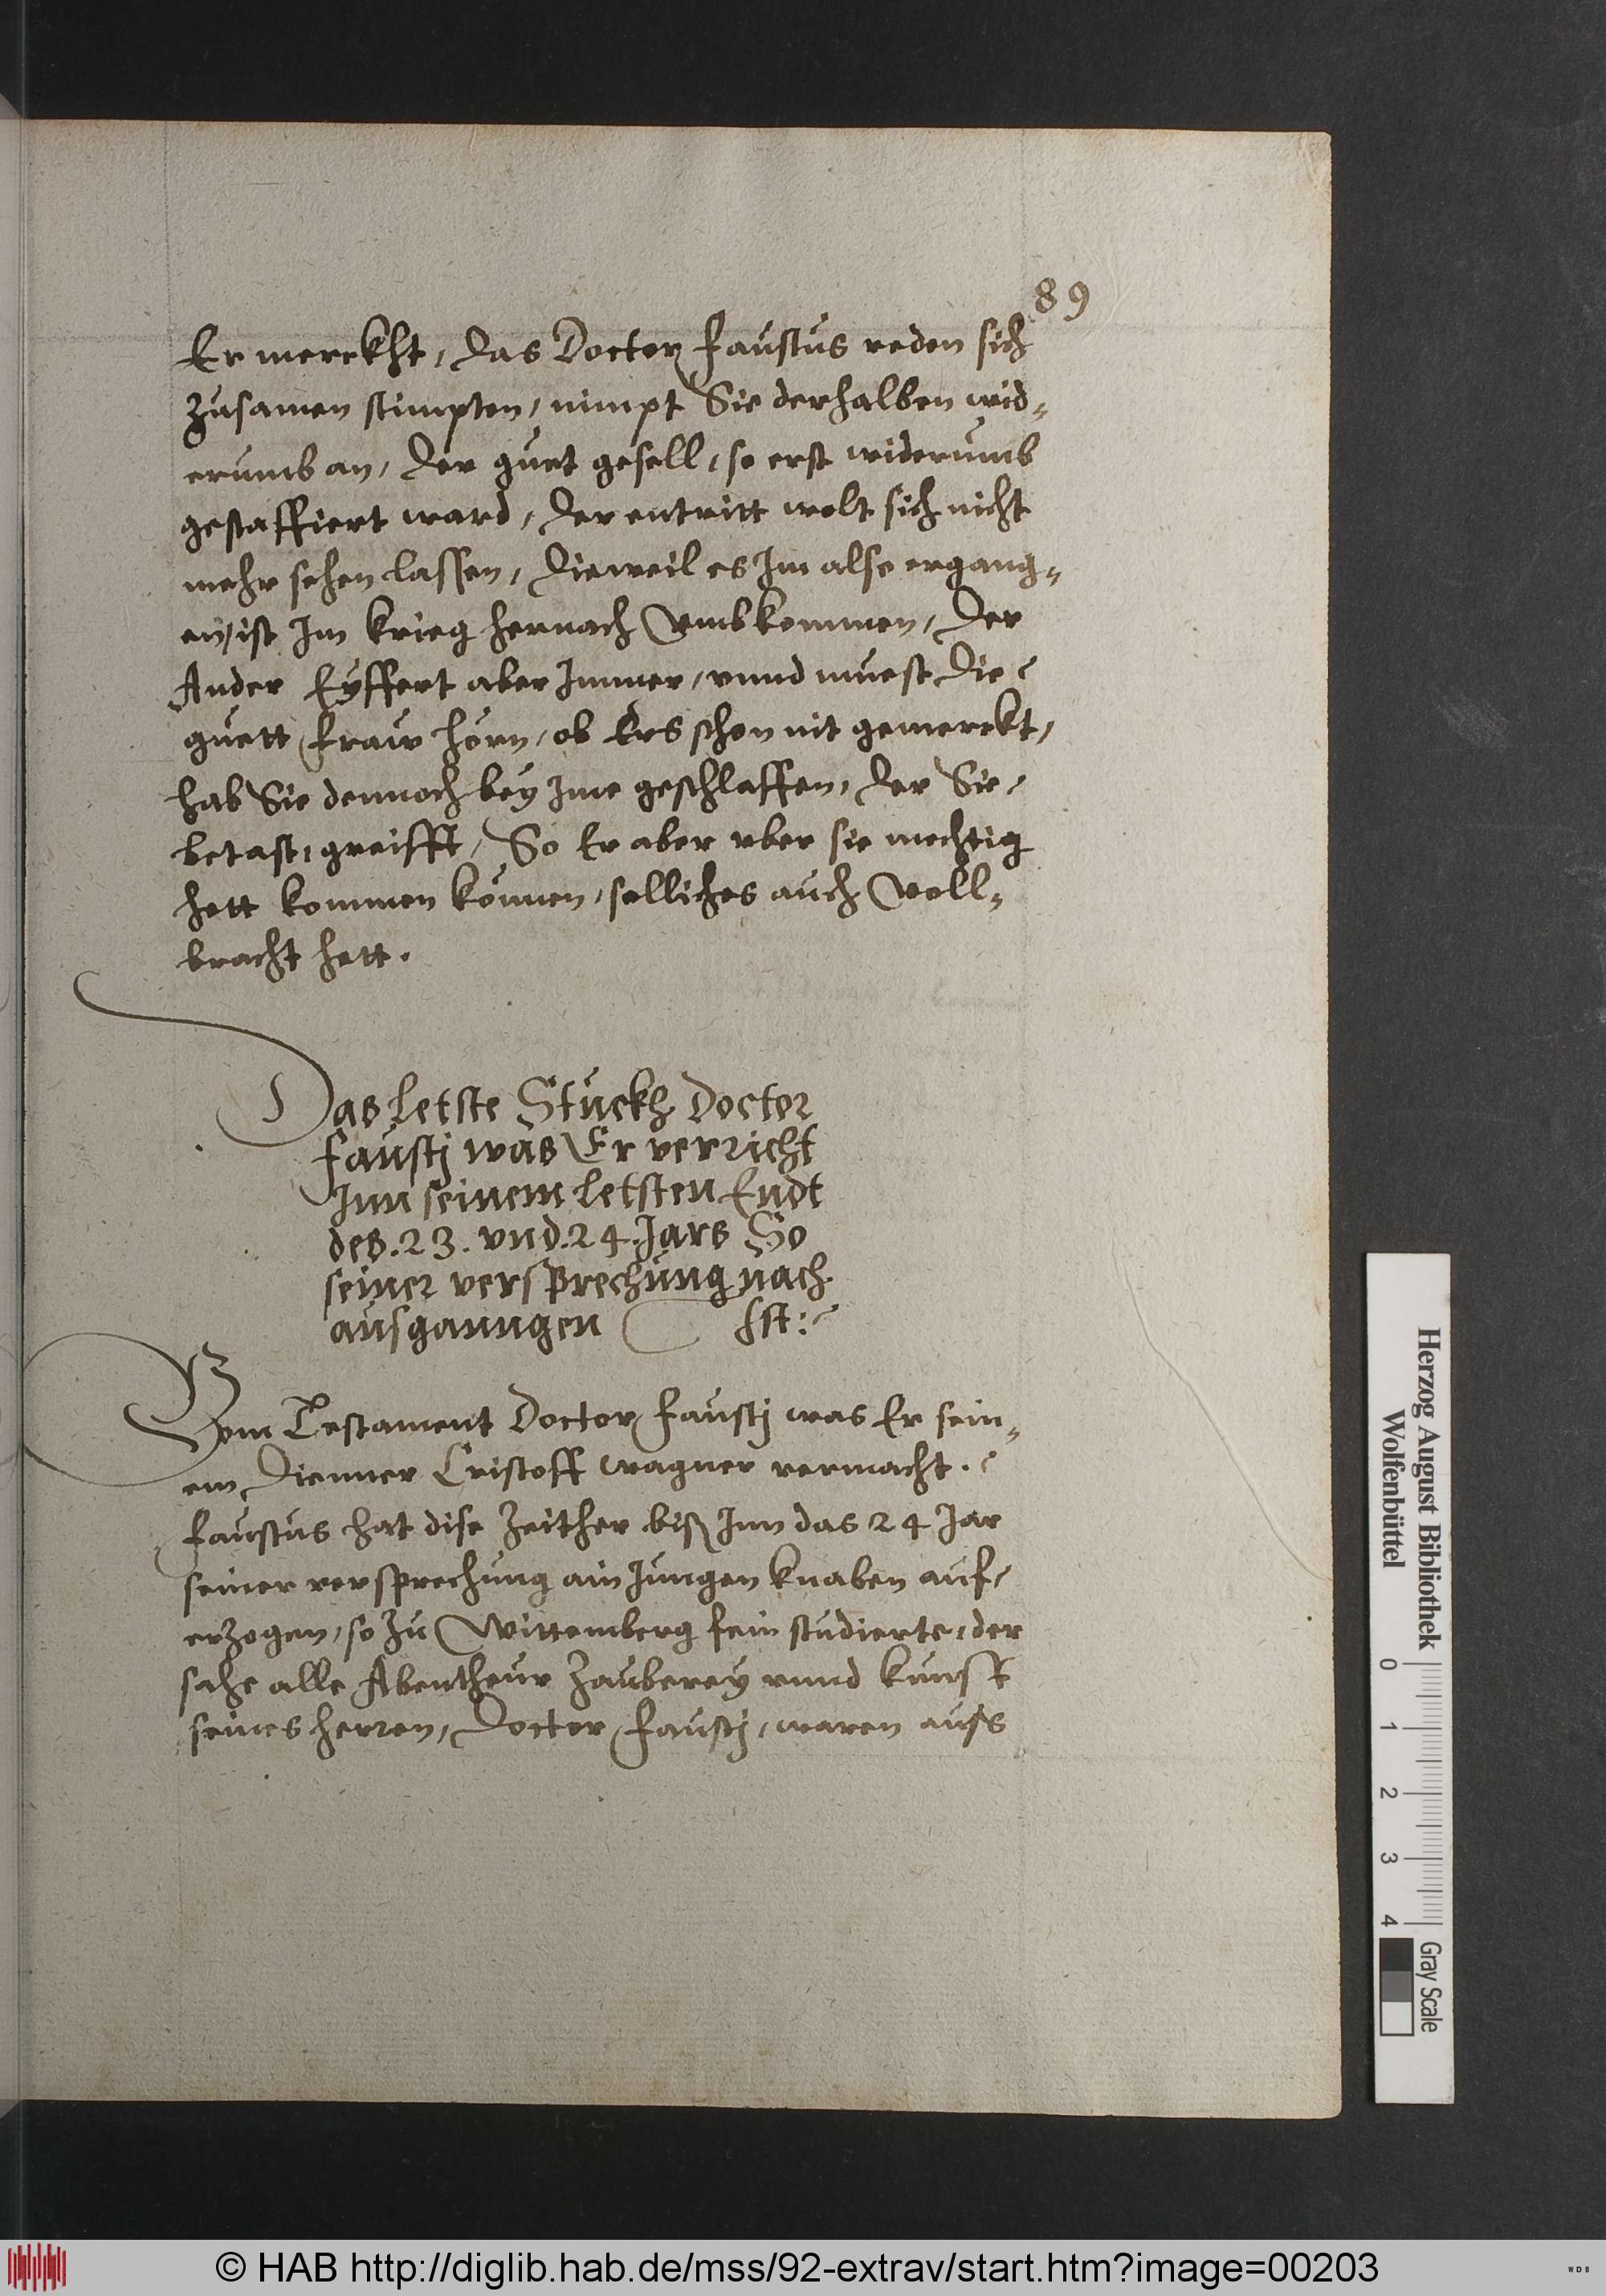 89
Er merckht, das Doctor Faustus reden sich
zusamen stimpten, nimpt Sie derhalben wid-
erumb an, der guet gesell, so erst widerumb
gestaffiert ward, der entritt wolt sich nicht
mehr sehen lassen, dieweil es Im also ergang-
en, ist Im krieg hernach Vmbkommen, der
Ander Eyffert aber Immer, vnnd muest die
guett fraw hörn, ob Ers schon nit gemerckt,
hab Sie dennoch bey Ime geschlaffen, der Sie
betast, greifft, So Er aber vber sie mechtig
hett kommen können, solliches auch Voll-
bracht hett.
Das letste Stückh Doctor
Faustj was Er verricht
Inn seinem letsten Endt
deß .23. vnd .24. Jars So
seiner versprechung nach
ausganngen Ist:
Vom Testament Doctor Faustj was Er sein-
em dienner Cristoff wagner vermacht.
Faustus hat dise Zeither biß Inn das 24 Jar
seiner versprechung ain Jungen knaben auf-
erzogen, so zu Wittemberg fein studierte, der
sahe alle Abentheur Zauberey vnnd kunst
seines herren, Doctor Faustj, waren aufs
Herzog August Bibliothek
Wolfenbüttel
0 1 2 3 4
Gray Scale
© HAB http://diglib.hab.de/mss/92-extrav/start.htm?image=00203
WDB